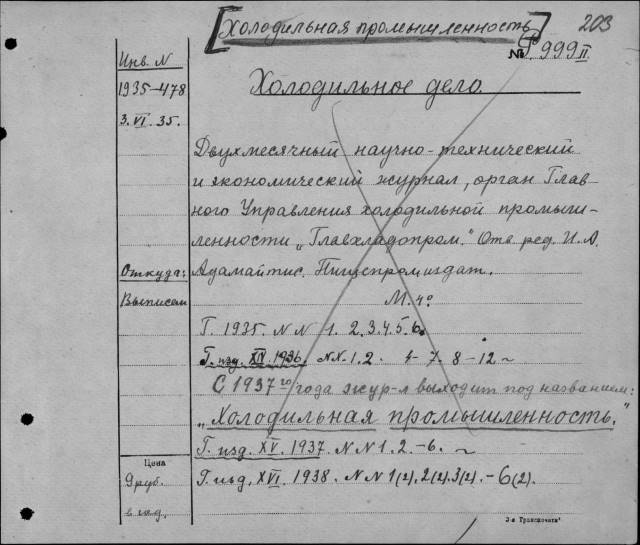 [Холодильная промышленность]
203
№ P999II
Инв. N
1935-478
3.VI.35.
Холодильное дело.
Двухмесячный научно-технический
и экономический журнал, орган Глав-
ного Управления холодильной промыш-
ленности „Главхладопром." Отв. ред. И. А.
Откуда: Адамайтис. Пищепромиздат.
Выписан
М. 4°
Г. 1935. N N 1. 2. 3. 4. 5. 6.
Г. изд. XIV. 1936. N N. 1. 2. 4-7. 8-12
С 1937 го года жур-л выходит под названием:
„Холодильная промышленность."
Г. изд. XV. 1937. N N 1. 2. -6.
Г. изд. XVI. 1938. N N 1(2). 2(2). 3(2). - 6(2).
Цена
9 руб.
в год.
З-я Транспечати